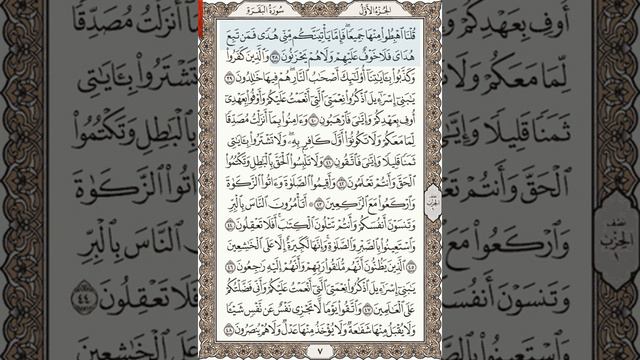 سُورَةُ البَقَرَةِ الجُزْءُ الأَوَّلُ
قُلْنَا ٱهْبِطُوا۟ مِنْهَا جَمِيعًا ۖ فَإِمَّا يَأْتِيَنَّكُم مِّنِّى هُدًى فَمَن تَبِعَ
هُدَاىَ فَلَا خَوْفٌ عَلَيْهِمْ وَلَا هُمْ يَحْزَنُونَ ٣٨ وَٱلَّذِينَ كَفَرُوا۟
وَكَذَّبُوا۟ بِـَٔايَـٰتِنَآ أُو۟لَـٰٓئِكَ أَصْحَـٰبُ ٱلنَّارِ ۖ هُمْ فِيهَا خَـٰلِدُونَ ٣٩
يَـٰبَنِىٓ إِسْرَٰٓءِيلَ ٱذْكُرُوا۟ نِعْمَتِىَ ٱلَّتِىٓ أَنْعَمْتُ عَلَيْكُمْ وَأَوْفُوا۟ بِعَهْدِىٓ
أُوفِ بِعَهْدِكُمْ وَإِيَّـٰىَ فَٱرْهَبُونِ ٤٠ وَءَامِنُوا۟ بِمَآ أَنزَلْتُ مُصَدِّقًا
لِّمَا مَعَكُمْ وَلَا تَكُونُوٓا۟ أَوَّلَ كَافِرٍۭ بِهِۦ ۖ وَلَا تَشْتَرُوا۟ بِـَٔايَـٰتِى
ثَمَنًا قَلِيلًا وَإِيَّـٰىَ فَٱتَّقُونِ ٤١ وَلَا تَلْبِسُوا۟ ٱلْحَقَّ بِٱلْبَـٰطِلِ وَتَكْتُمُوا۟
ٱلْحَقَّ وَأَنتُمْ تَعْلَمُونَ ٤٢ وَأَقِيمُوا۟ ٱلصَّلَوٰةَ وَءَاتُوا۟ ٱلزَّكَوٰةَ
وَٱرْكَعُوا۟ مَعَ ٱلرَّٰكِعِينَ ٤٣ أَتَأْمُرُونَ ٱلنَّاسَ بِٱلْبِرِّ
وَتَنسَوْنَ أَنفُسَكُمْ وَأَنتُمْ تَتْلُونَ ٱلْكِتَـٰبَ ۚ أَفَلَا تَعْقِلُونَ ٤٤
وَٱسْتَعِينُوا۟ بِٱلصَّبْرِ وَٱلصَّلَوٰةِ ۚ وَإِنَّهَا لَكَبِيرَةٌ إِلَّا عَلَى ٱلْخَـٰشِعِينَ
٤٥ ٱلَّذِينَ يَظُنُّونَ أَنَّهُم مُّلَـٰقُوا۟ رَبِّهِمْ وَأَنَّهُمْ إِلَيْهِ رَٰجِعُونَ ٤٦
يَـٰبَنِىٓ إِسْرَٰٓءِيلَ ٱذْكُرُوا۟ نِعْمَتِىَ ٱلَّتِىٓ أَنْعَمْتُ عَلَيْكُمْ وَأَنِّى فَضَّلْتُكُمْ
عَلَى ٱلْعَـٰلَمِينَ ٤٧ وَٱتَّقُوا۟ يَوْمًا لَّا تَجْزِى نَفْسٌ عَن نَّفْسٍ شَيْـًٔا
وَلَا يُقْبَلُ مِنْهَا شَفَـٰعَةٌ وَلَا يُؤْخَذُ مِنْهَا عَدْلٌ وَلَا هُمْ يُنصَرُونَ ٤٨
٧
نصف
الحزب
١